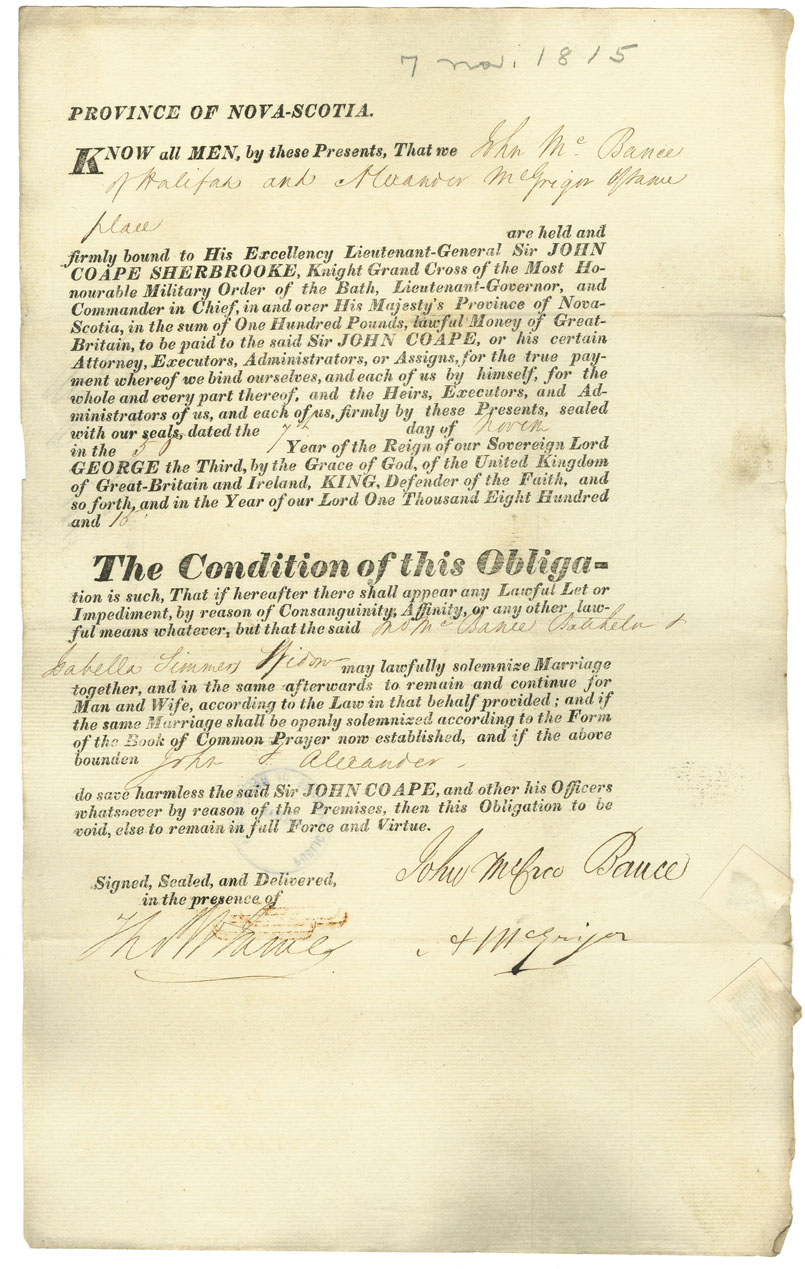 7 nov. 1815
PROVINCE OF NOVA-SCOTIA.
KNOW all MEN, by these Presents, That we John Mc Bance
of Halifax and Alexander McGrigor of same
place
are held and
firmly bound to His Excellency Lieutenant-General Sir JOHN
COAPE SHERBROOKE, Knight Grand Cross of the Most Ho-
nourable Military Order of the Bath, Lieutenant-Governor, and
Commander in Chief, in and over His Majesty's Province of Nova-
Scotia, in the sum of One Hundred Pounds, lawful Money of Great-
Britain, to be paid to the said Sir JOHN COAPE, or his certain
Attorney, Executors, Administrators, or Assigns, for the true pay-
ment whereof we bind ourselves, and each of us by himself, for the
whole and every part thereof, and the Heirs, Executors, and Ad-
ministrators of us, and each of us, firmly by these Presents, sealed
with our seals, dated the 7th day of Novem
in the Year of the Reign of our Sovereign Lord
GEORGE the Third, by the Grace of God, of the United Kingdom
of Great-Britain and Ireland, KING, Defender of the Faith, and
so forth, and in the Year of our Lord One Thousand Eight Hundred
and 15
The Condition of this Obliga-
tion is such, That if hereafter there shall appear any Lawful Let or
Impediment, by reason of Consanguinity, Affinity, or any other law-
ful means whatever, but that the said Jno Mc Bance Batchelor &
Isabella Simmers Widow may lawfully solemnize Marriage
together, and in the same afterwards to remain and continue for
Man and Wife, according to the Law in that behalf provided; and if
the same Marriage shall be openly solemnized according to the Form
of the Book of Common Prayer now established, and if the above
bounden John & Alexander
do save harmless the said Sir JOHN COAPE, and other his Officers
whatsoever by reason of the Premises, then this Obligation to be
void, else to remain in full Force and Virtue.
John Bance
Signed, Sealed, and Delivered,
in the presence of
A McGrigor